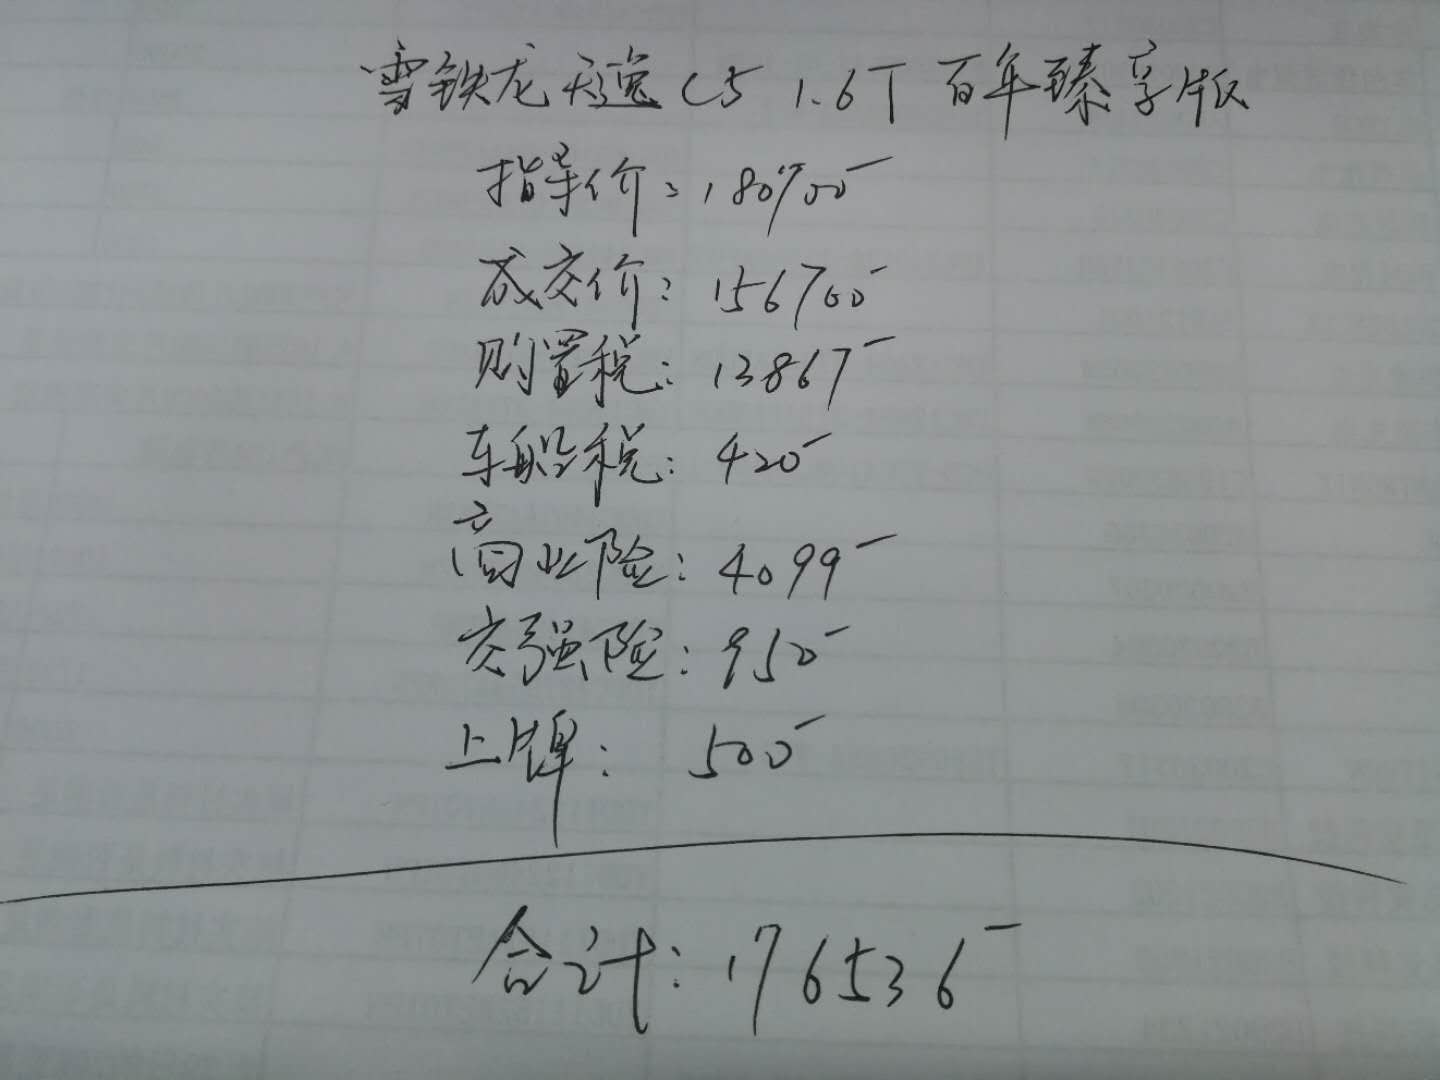 雪铁龙天逸C5 1.6T 百年臻享版
指导价:180700
成交价:156700
购置税:13867
车船税:420
商业险:4099
交强险:950
上牌: 500
合计:176536